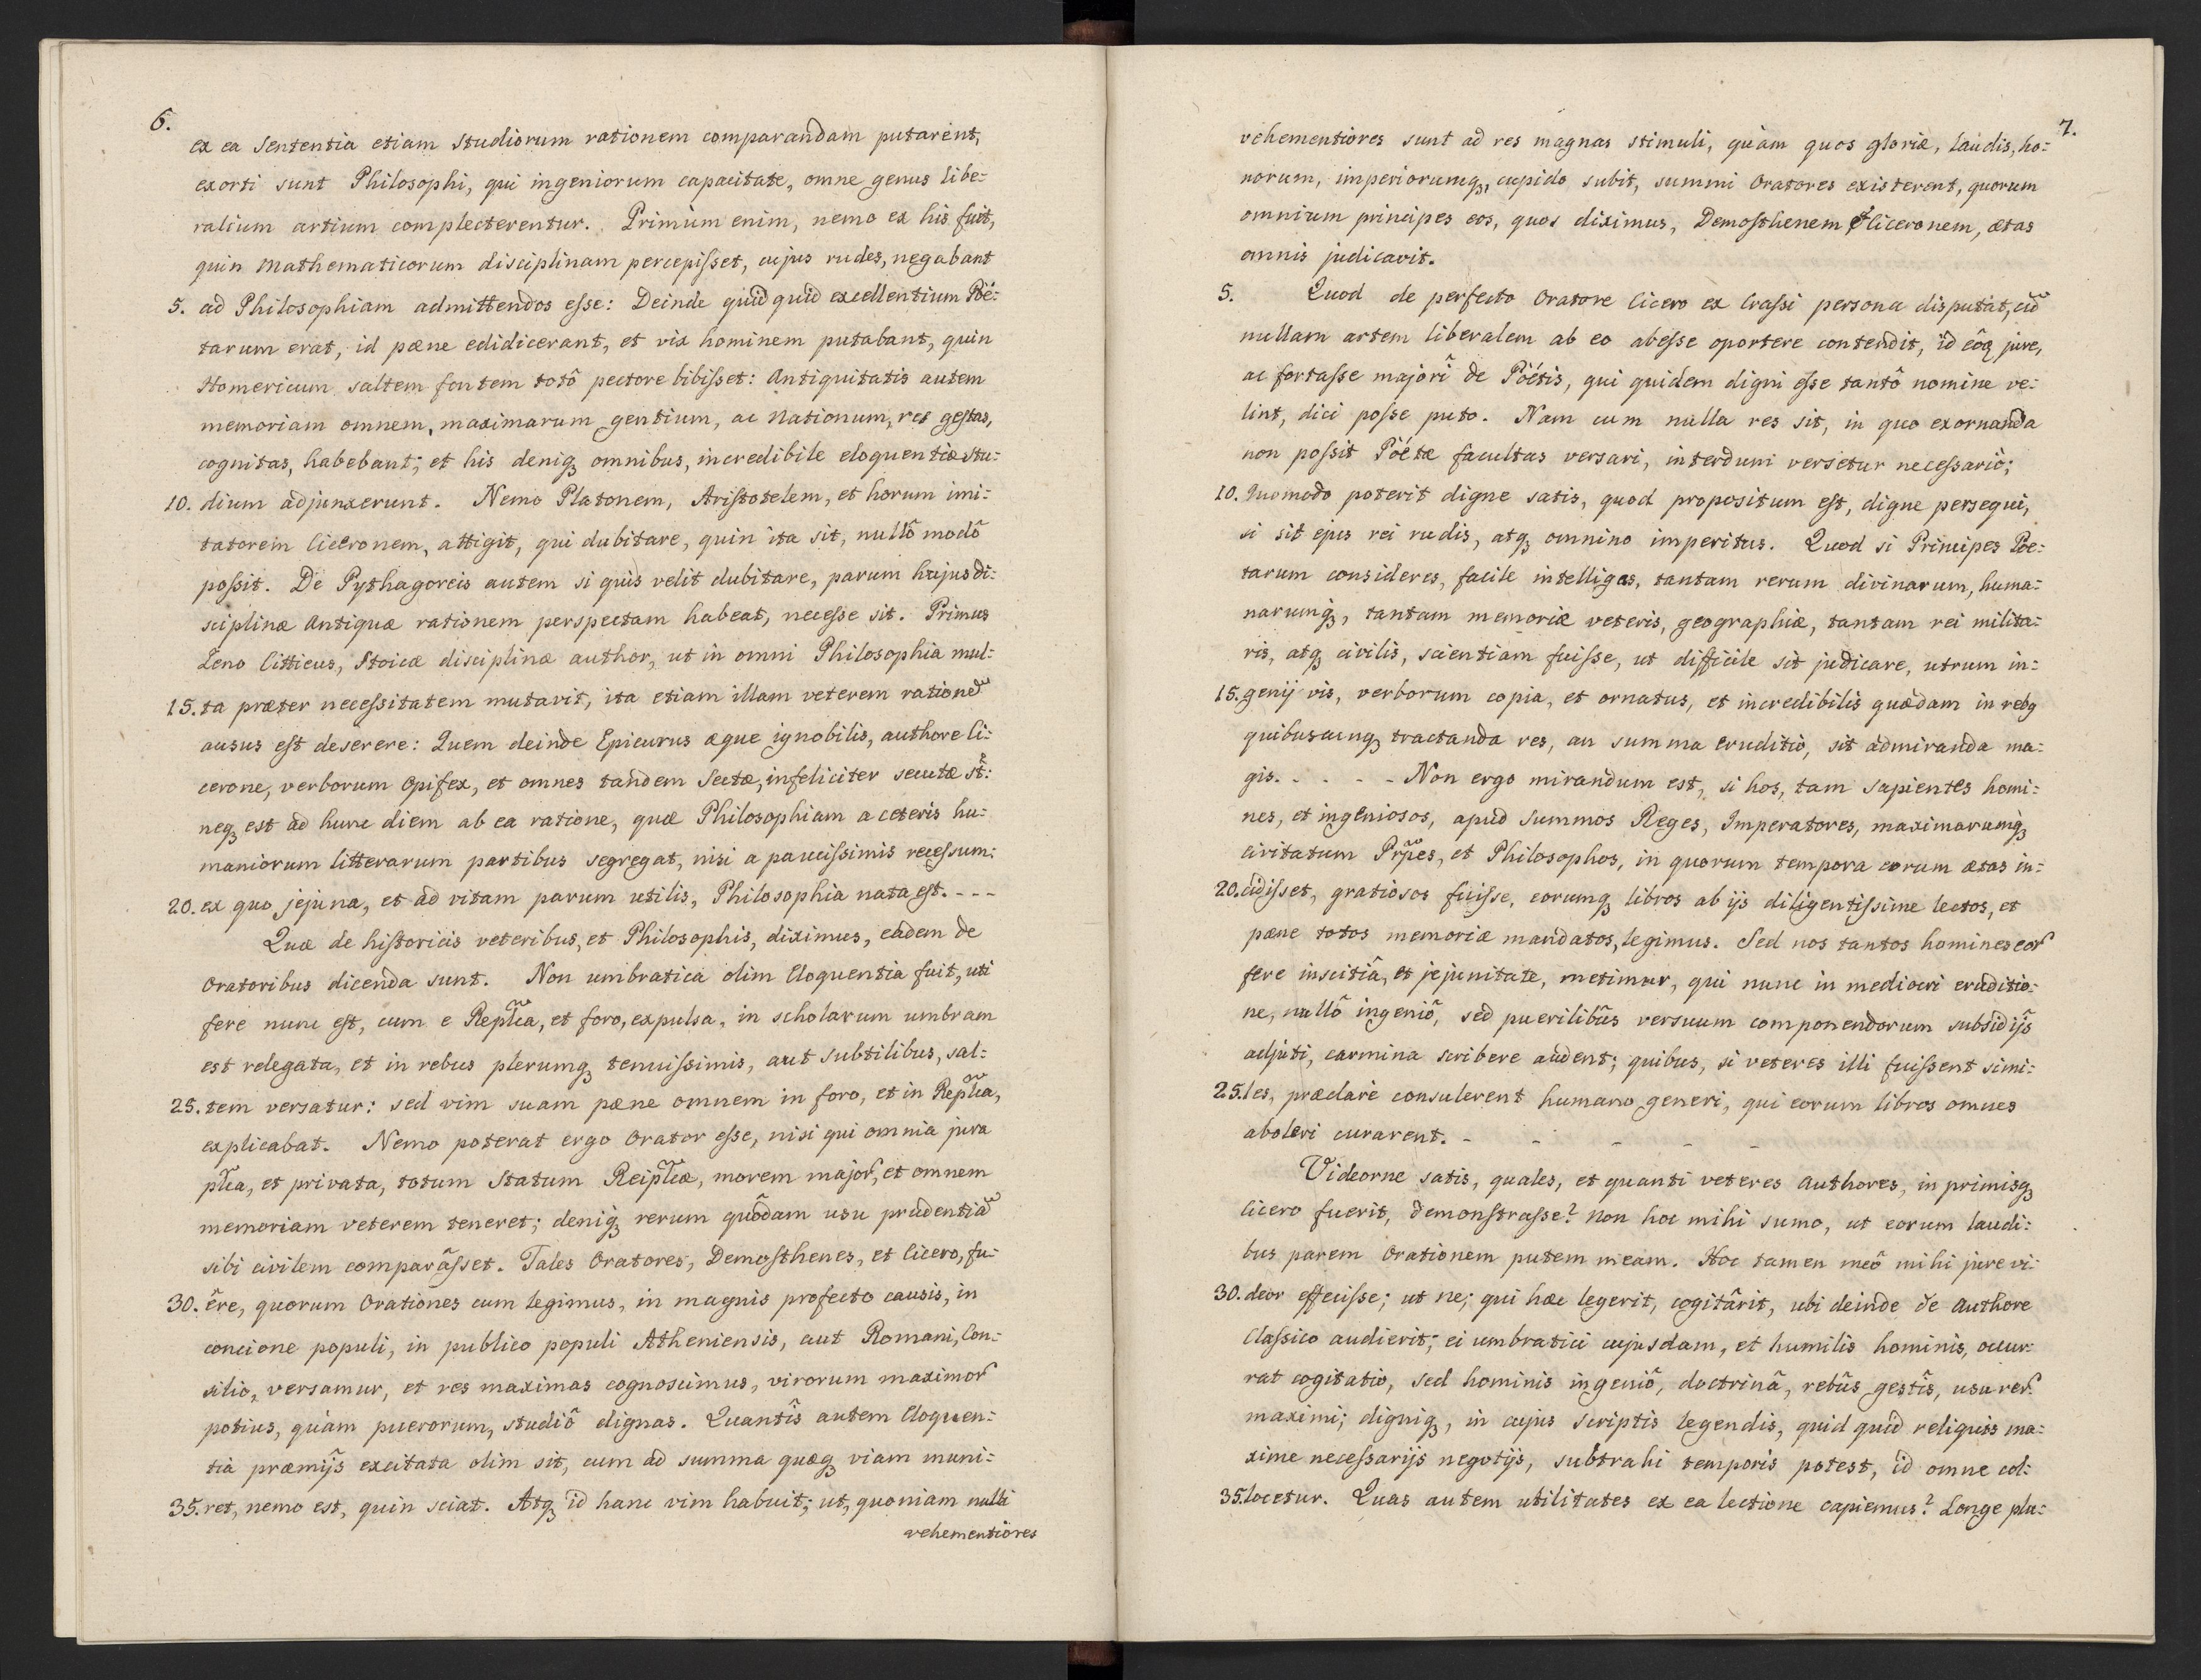 6.
ex ea Sententia etiam Studiorum rationem comparandam putarent,
exorti sunt Philosophi, qui ingeniorum capacitate, omne genus libe=
ralium artium complecterentur. Primùm enim, nemo ex his fuit,
quin Mathematicorum disciplinam percepiſset, cujus rudes, negabant
5. ad Philosophiam admittendos eſse: Deinde quidquid excellentium Poë=
tarum erat, id pæne edidicerant, et vix hominem putabant, quin
Homericum saltem fontem totô pectore bibiſset: Antiquitatis autem
memoriam omnem, maximarum gentium, ac Nationum, res gestas,
cognitas, habebant; et his deniq₃ omnibus, incredibile eloquentiæ stu=
10. dium adjunxerunt. Nemo Platonem, Ariſtotelem, et horum imi=
tatorem Ciceronem, attigit, qui dubitare, quin ita sit, nullô modô
poſsit. De Pythagoreis autem si quis velit dubitare, parum hujus di=
sciplinæ Antiquæ rationem perspectam habeat, neceſse sit. Primus
Zeno Citticus, Stoicæ disciplinæ author, ut in omni Philosophia mul=
15. ta præter neceſsitatem mutavit, ita etiam illam veterem rationẽ
ausus eſt deserere: Quem deinde Epicurus æque ignobilis, authore Ci=
cerone, verborum Opifex, et omnes tandem Sectæ, infeliciter secutæ st̃:
neq₃ est ad hunc diem ab ea ratione, quæ Philosophiam a ceteris hu=
maniorum litterarum partibus segregat, nisi a pauciſsimis receſsum:
20. ex quo jejuna, et ad vitam parum utilis, Philosophia nata eſt. - - -
Quæ de hiſtoricis veteribus, et Philosophis, diximus, eadem de
Oratoribus dicenda sunt. Non umbratica olim Eloquentia fuit, uti
fere nunc eſt, cum e Repl̃ca, et foro, expulsa, in scholarum umbram
est relegata, et in rebus plerumq₃ tenuiſsimis, aut subtilibus, sal=
25. tem versatur: sed vim suam pæne omnem in foro, et in Repl̃ca,
explicabat. Nemo poterat ergo Orator eſse, nisi qui omnia jura
pl̃ca, et privata, totum Statum Reipl̃cæ, morem major̃, et omnem
memoriam veterem teneret; deniq₃ rerum quôdam usu prudentiã
sibi civilem comparâſset. Tales Oratores, Demoſthenes, et Cicero, fu=
30. êre, quorum Orationes cum legimus, in magnis profecto causis, in
concione populi, in publico populi Atheniensis, aut Romani, Con=
silio, versamur, et res maximas cognoscimus, virorum maximor̃
potius, quàm puerorum, studiô dignas. Quantîs autem Eloquen=
tia præmijs excitata olim sit, cum ad summa quæq₃ viam muni=
35. ret, nemo est, quin sciat. Atq₃ id hanc vim habuit; ut, quoniam nulli
vehementiores
7.
vehementiores sunt ad res magnas stimuli, quàm quos gloriæ, laudis, ho=
norum, imperiorumq₃, cupido subit, summi Oratores existerent, quorum
omnium principes eos, quos diximus, Demoſthenem & Ciceronem, ætas
omnis judicavit.
5. Quod de perfecto Oratore Cicero ex Craſsi persona disputat, cũ
nullam artem liberalem ab eo abeſse oportere contendit, id eôq₃ jure,
ac fortaſse majorî de Poëtis, qui quidem digni eſse tantô nomine ve=
lint, dici poſse puto. Nam cum nulla res sit, in quo exornanda
non poſsit Poëtæ facultas versari, interdum versetur neceſsariò;
10. Quomodo poterit digne satis, quod propositum eſt, digne persequi,
si sit ejus rei rudis, atq₃ omnino imperitus. Quod si Principes Poe=
tarum consideres, facile intelligas, tantam rerum divinarum, huma=
narumq₃, tantam memoriæ veteris, geographiæ, tantam rei milita=
ris, atq₃ civilis, scientiam fuiſse, ut difficile sit judicare, utrum in=
15. genij vis, verborum copia, et ornatus, et incredibilis quædam in reb₉
quibuscunq₃ tractanda res, an summa eruditio, sit admiranda ma=
gis. - - - - Non ergo mirandum est, si hos, tam sapientes homi=
nes, et ingeniosos, apud Summos Reges, Imperatores, maximarumq₃
civitatum Prp̃es, et Philosophos, in quorum tempora eorum ætas in=
20. cidiſset, gratiosos fuiſse, eorumq₃ libros ab ijs diligentiſsime lectos, et
pæne totos memoriæ mandatos, legimus. Sed nos tantos homines eor̃
fere inscitiâ, et jejunitate, metimur, qui nunc in mediocri eruditio=
ne, nullô ingeniô, sed puerilibûs versuum componendorum subsidijs
adjuti, carmina scribere audent; quibus, si veteres illi fuiſsent simi=
25. les, præclarè consulerent humano generi, qui eorum libros omnes
aboleri curarent. - - - - -
Videorne satis, quales, et quanti veteres Authores, in primisq₃
Cicero fuerit, demonſtraſse? Non hoc mihi sumo, ut eorum laudi=
bus parem Orationem putem meam. Hoc tamen meô mihi jure vi=
30. deor effeciſse; ut ne; qui hæc legerit, cogitârit, ubi deinde de Authore
Claſsico audierit; ei umbratici cujusdam, et humilis hominis, occur=
rat cogitatio, sed hominis ingeniô, doctrinâ, rebûs gestîs, usu rer̃
maximi; digniq₃, in cujus scriptis legendis, quidquid reliquis ma=
xime neceſsarijs negotijs, subtrahi temporis potest, id omne col=
35. locetur. Quas autem utilitates ex ea lectione capiemus? Longe plu=